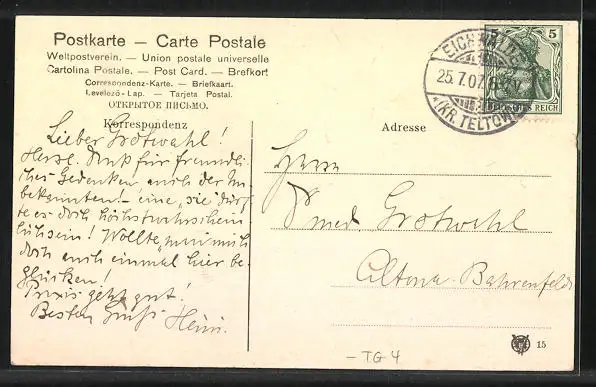 Postkarte — Carte Postale
Weltpostverein. — Union postale universelle
Cartolina Postale. — Post Card. — Brefkort
Correspondenz-Karte. — Briefkaart.
Levelező-Lap. — Tarjeta Postal.
ОТКРЫТОЕ ПИСЬМО.
Korrespondenz
Adresse
EICHWALDE
25.7.07.
*(KR. TELTOW)
5 5
DEUTSCHES REICH
Lieber Grotwahl!
Herzl. Dank für freundli-
ches Gedenken, auch der Un-
bekannten! – eine "sie" dürf-
te es doch höchstwahrschein
lich sein! Wollte, mich
doch auch einmal hier be-
glücken!
Praxis geht gut!
Besten Gruß Heini.
Herrn
med. Grotwahl
Altona-Bahrenfeld
— TG 4
15